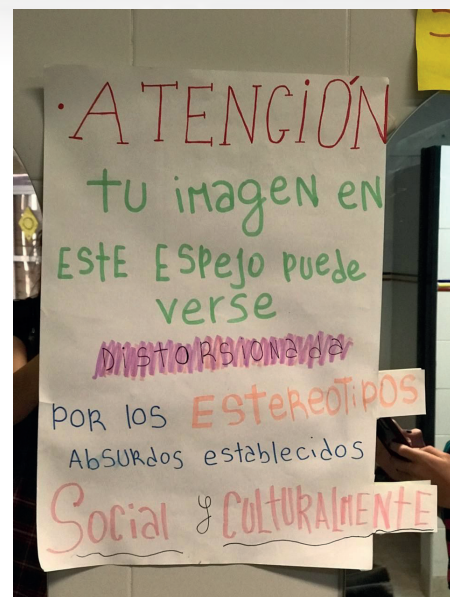 ·ATENCIÓN
tU iMagEN EN
EStE ESPEJO PUEDE
VERSE
DiStORSiONada
POR lOS EStEREOTiPOS
AbSURdOS establecidos
Social y CULTURALMENTE